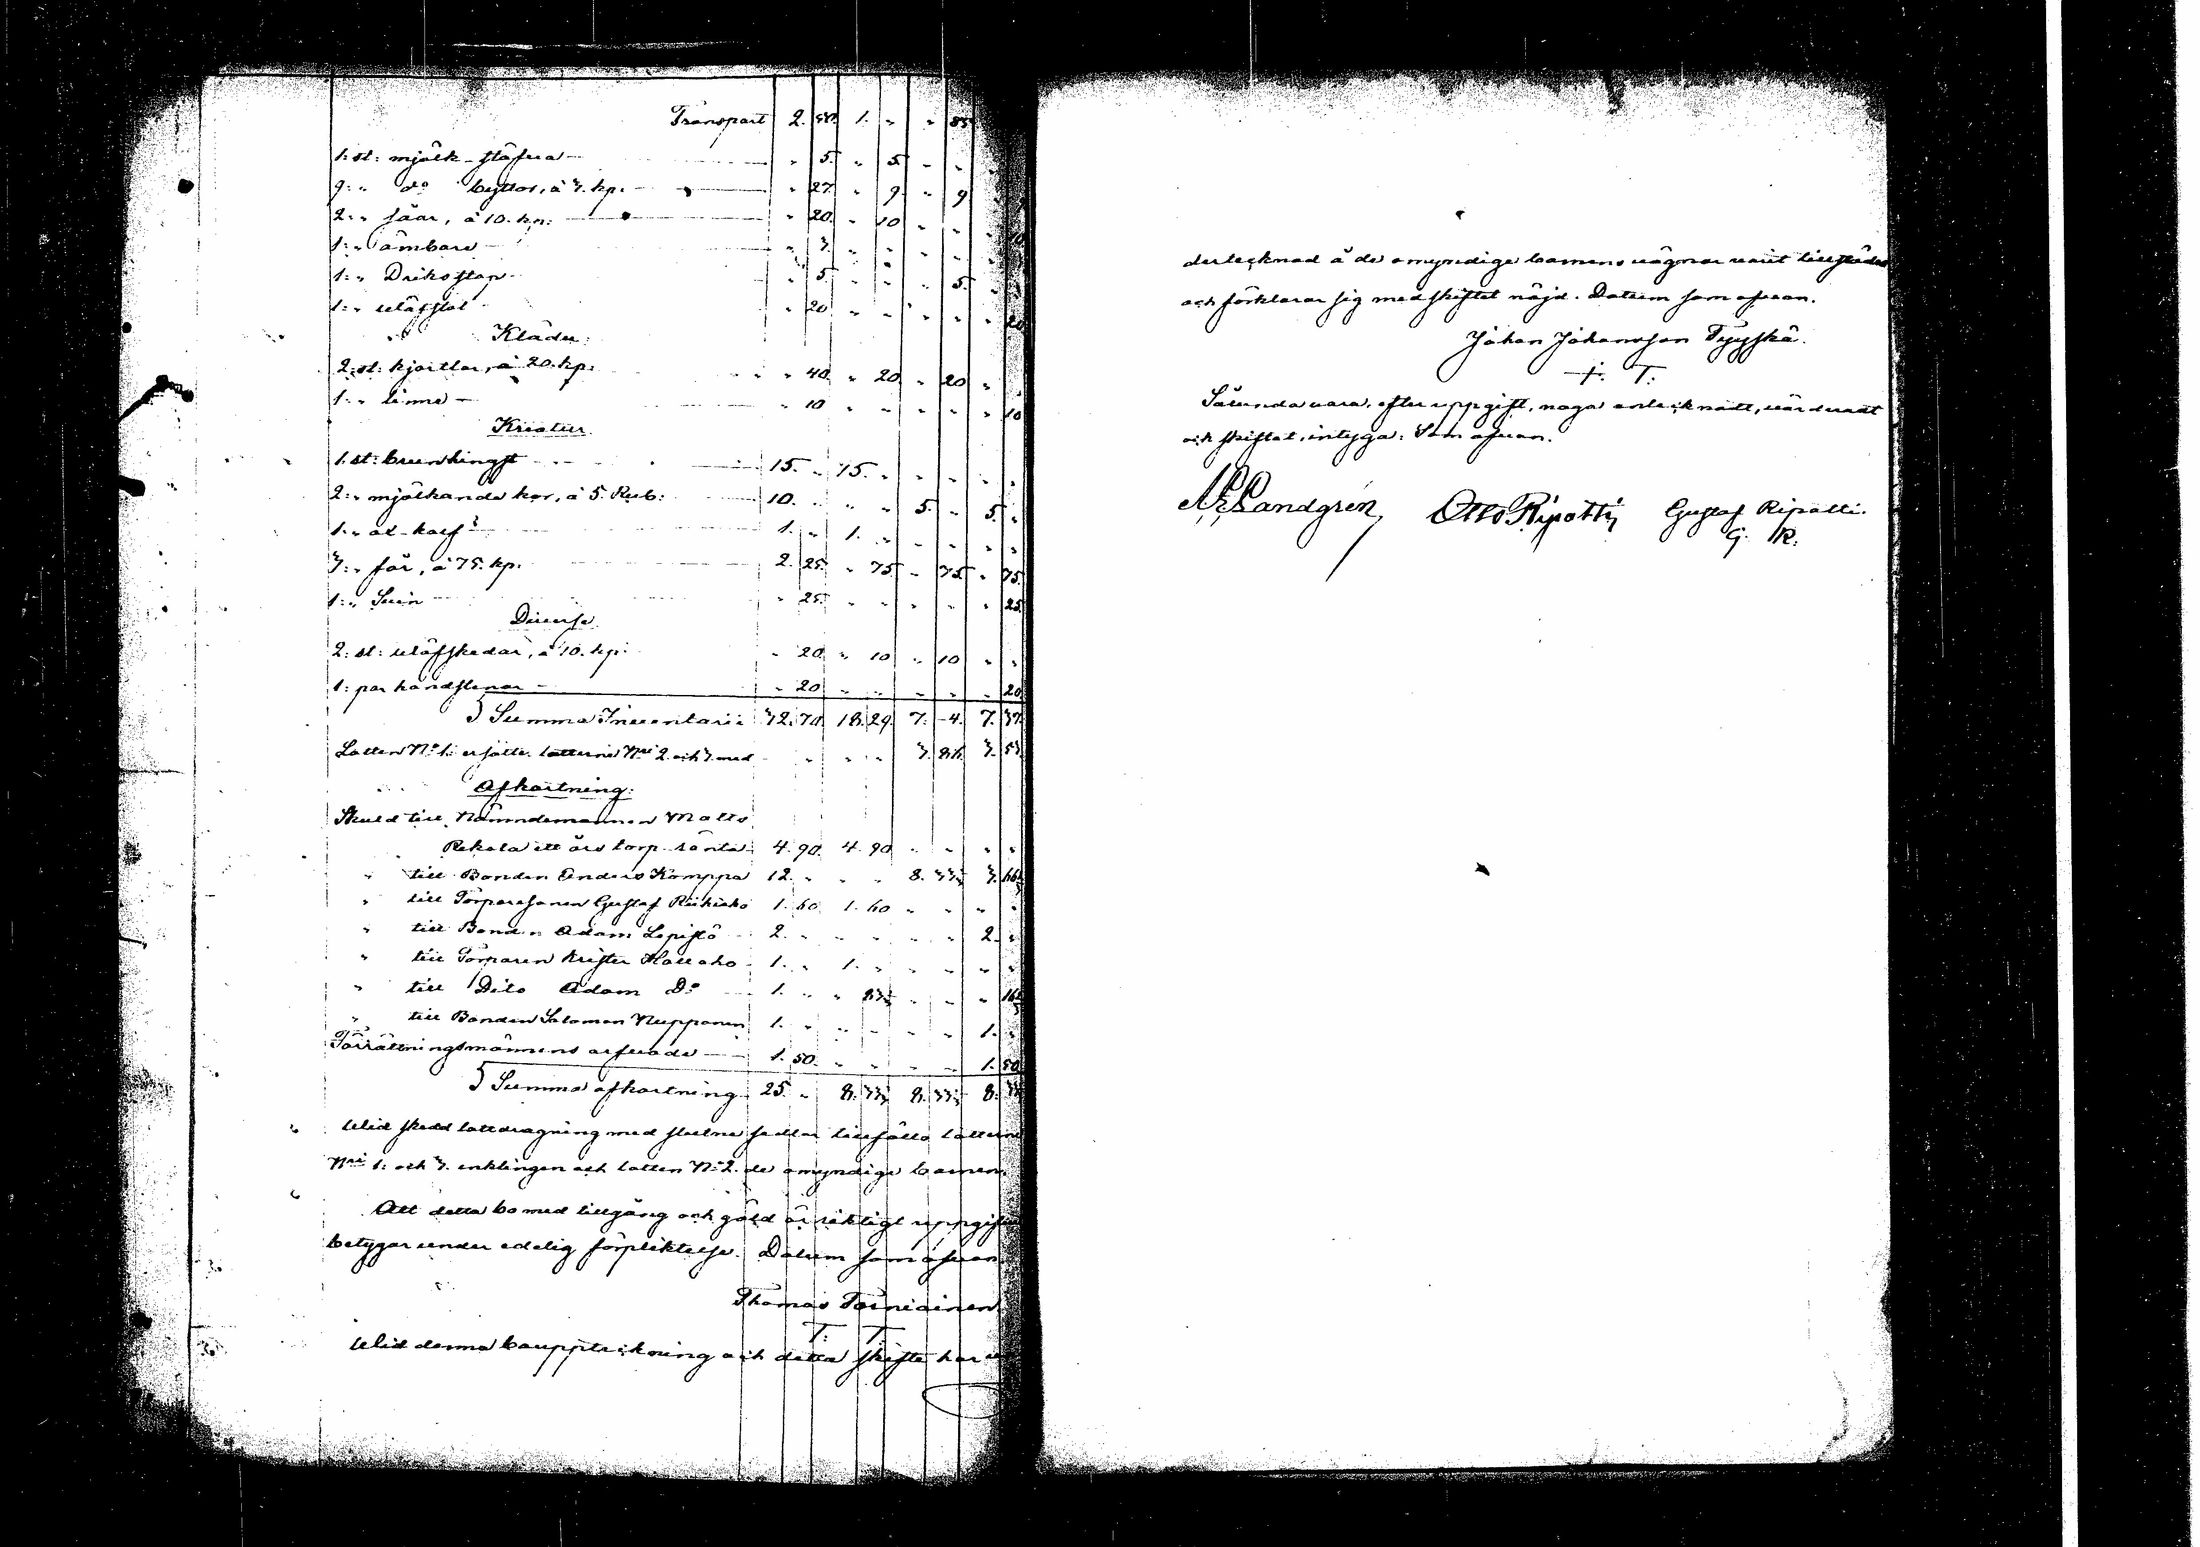 Transport 2. 58. 1. " " 85
1: st: mjölk-stäfva " 5. " 5. " "
9: " do byttor, à 3. kp: " 27. " 9. " 9
2: " såar, à 10. kp: " 20. " 10 " " " 10
1: " ämbare " 3. " " " "
1: " Dricksstop " 5 " " " 5. "
1: " wäfstol " 20 " " " " " 20
Kläder:
2: st: kjortlar, à 20. kp: " 40. " 20 " 20 "
1: " linne " 10 " " " " " 10
Kreatur
1. st: brun hingst 15. " 15. " " " " "
2: " mjölkande kor, à 5. Rub: 10. " " " 5. " 5. "
1: " åt-kalf 1. " 1. " " " " "
3: " får, à 75. kp. 2. 25 " 75 " 75 " 75.
1: " Svin " 25. " " " " " 25
Diverse
2: st: wäfskedar, à 10. kp: " 20. " 10 " 10 " "
1: par handstenar " 20 " " " " " 20
Summa Inventarii 32. 70. 18. 29. 7. 4. 7. 37.
Lotten No 1: ersätte lotterne Nri 2 och 3. med " " " 3. 86. 3. 53
Afkortning:
Skuld till Nämndemannen Matts
Rekola ett års torp-ränta 4. 90. 4. 90 " " " "
" till Bonden Anders Komppa 12. " " " 8. 33⅓ 3. 66⅔
" till Torparesonen Gustaf Riihiaho 1. 60. 1. 60 " " " "
" till Bonden Adam Lepistö 2. " " " " " 2. "
" till Torparen Krister Hallaho 1. " 1. " " " " "
" till Dito Adam Do 1. " " 83⅓ " " " 16⅔
" till Bonden Salomon Nupponen 1. " " " " " 1. "
Förrättningsmännens arfvode 1. 50. " " " " 1. 50
Summa afkortning 25. " 8. 33⅓ 8. 33⅓ 8. 33⅓
Wid skedd lottdragning med slutne sedlar tillföllo lotterne
Nri 1: och 3. enklingen och lotten No 2. de omyndige barnen.
Att detta bo med tillgång och gäld är riktigt uppgifvet
betygar under edelig förpliktelse. Datum som ofvan
Thomas Törniäinen
T: T:
Wid denna bouppteckning och detta skifte har un
dertecknad å de omyndige barnens vägnar varit tillstädes
och förklarar sig med skiftet nöjd. Datum som ofvan.
Johan Johansson Tyyskä.
+. T:
Sålunda vara, efter uppgift, noga antecknadt, värderadt
och skiftat, intyga: Som ofvan.
Sandgrén, Otto Ripatti, Gustaf Ripatti.
G. R: